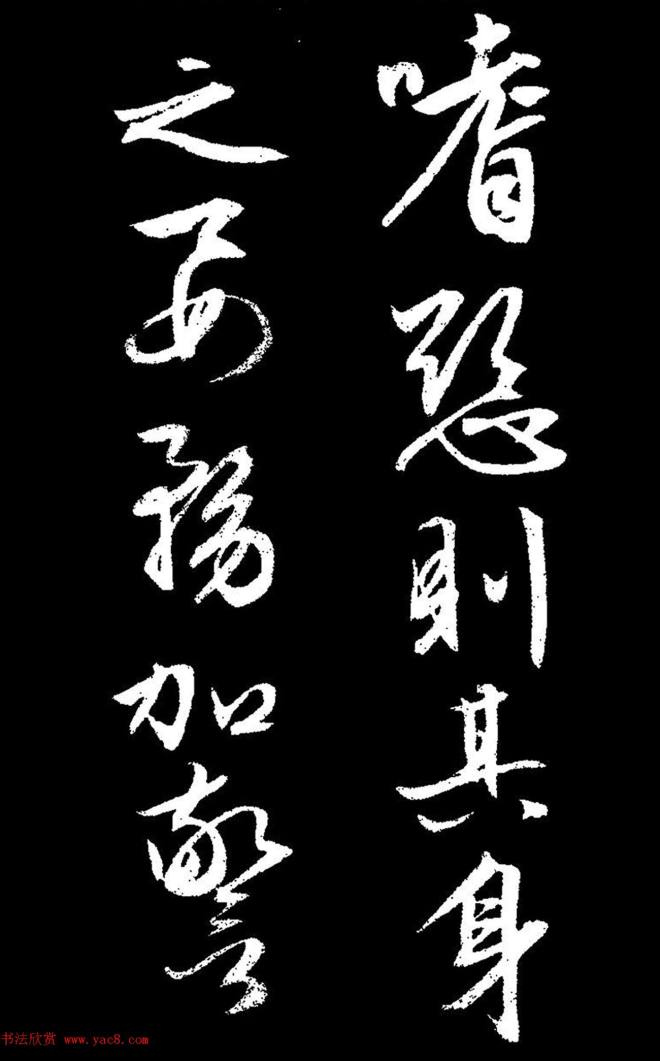 嗜慾則其身
之要務加警
书法欣赏 www.yac8.com